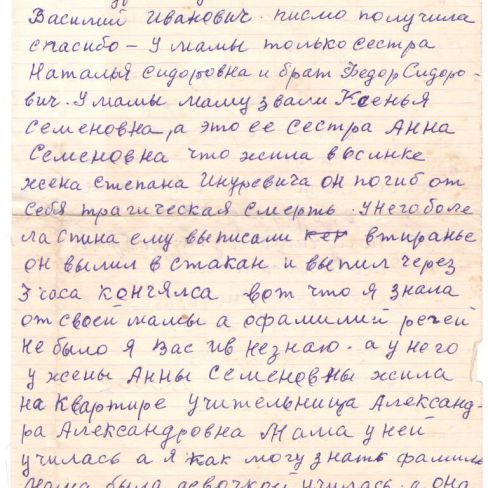 Василий Иванович. писмо получила
спасибо – У мамы только сестра
Наталья Сидоровна и брат Федор Сидоро-
вич. У мамы маму звали Ксенья
Семеновна, а это ее сестра Анна
Семеновна что жила в Осинке
жена Степана он погиб от
себя трагическая смерть. У него боле
ла спина ему выписали втиранье
он вылил в стакан и выпил через
3 часа кончялса вот что я знала
от своей мамы а о фамилий речей
не было я Вас ив не знаю. а у него
у жены Анны Семеновны жила
на квартире учительница Александ-
ра Александровна Мама у ней
училась а я как могу знать фамили
мама была девочкой училась а она